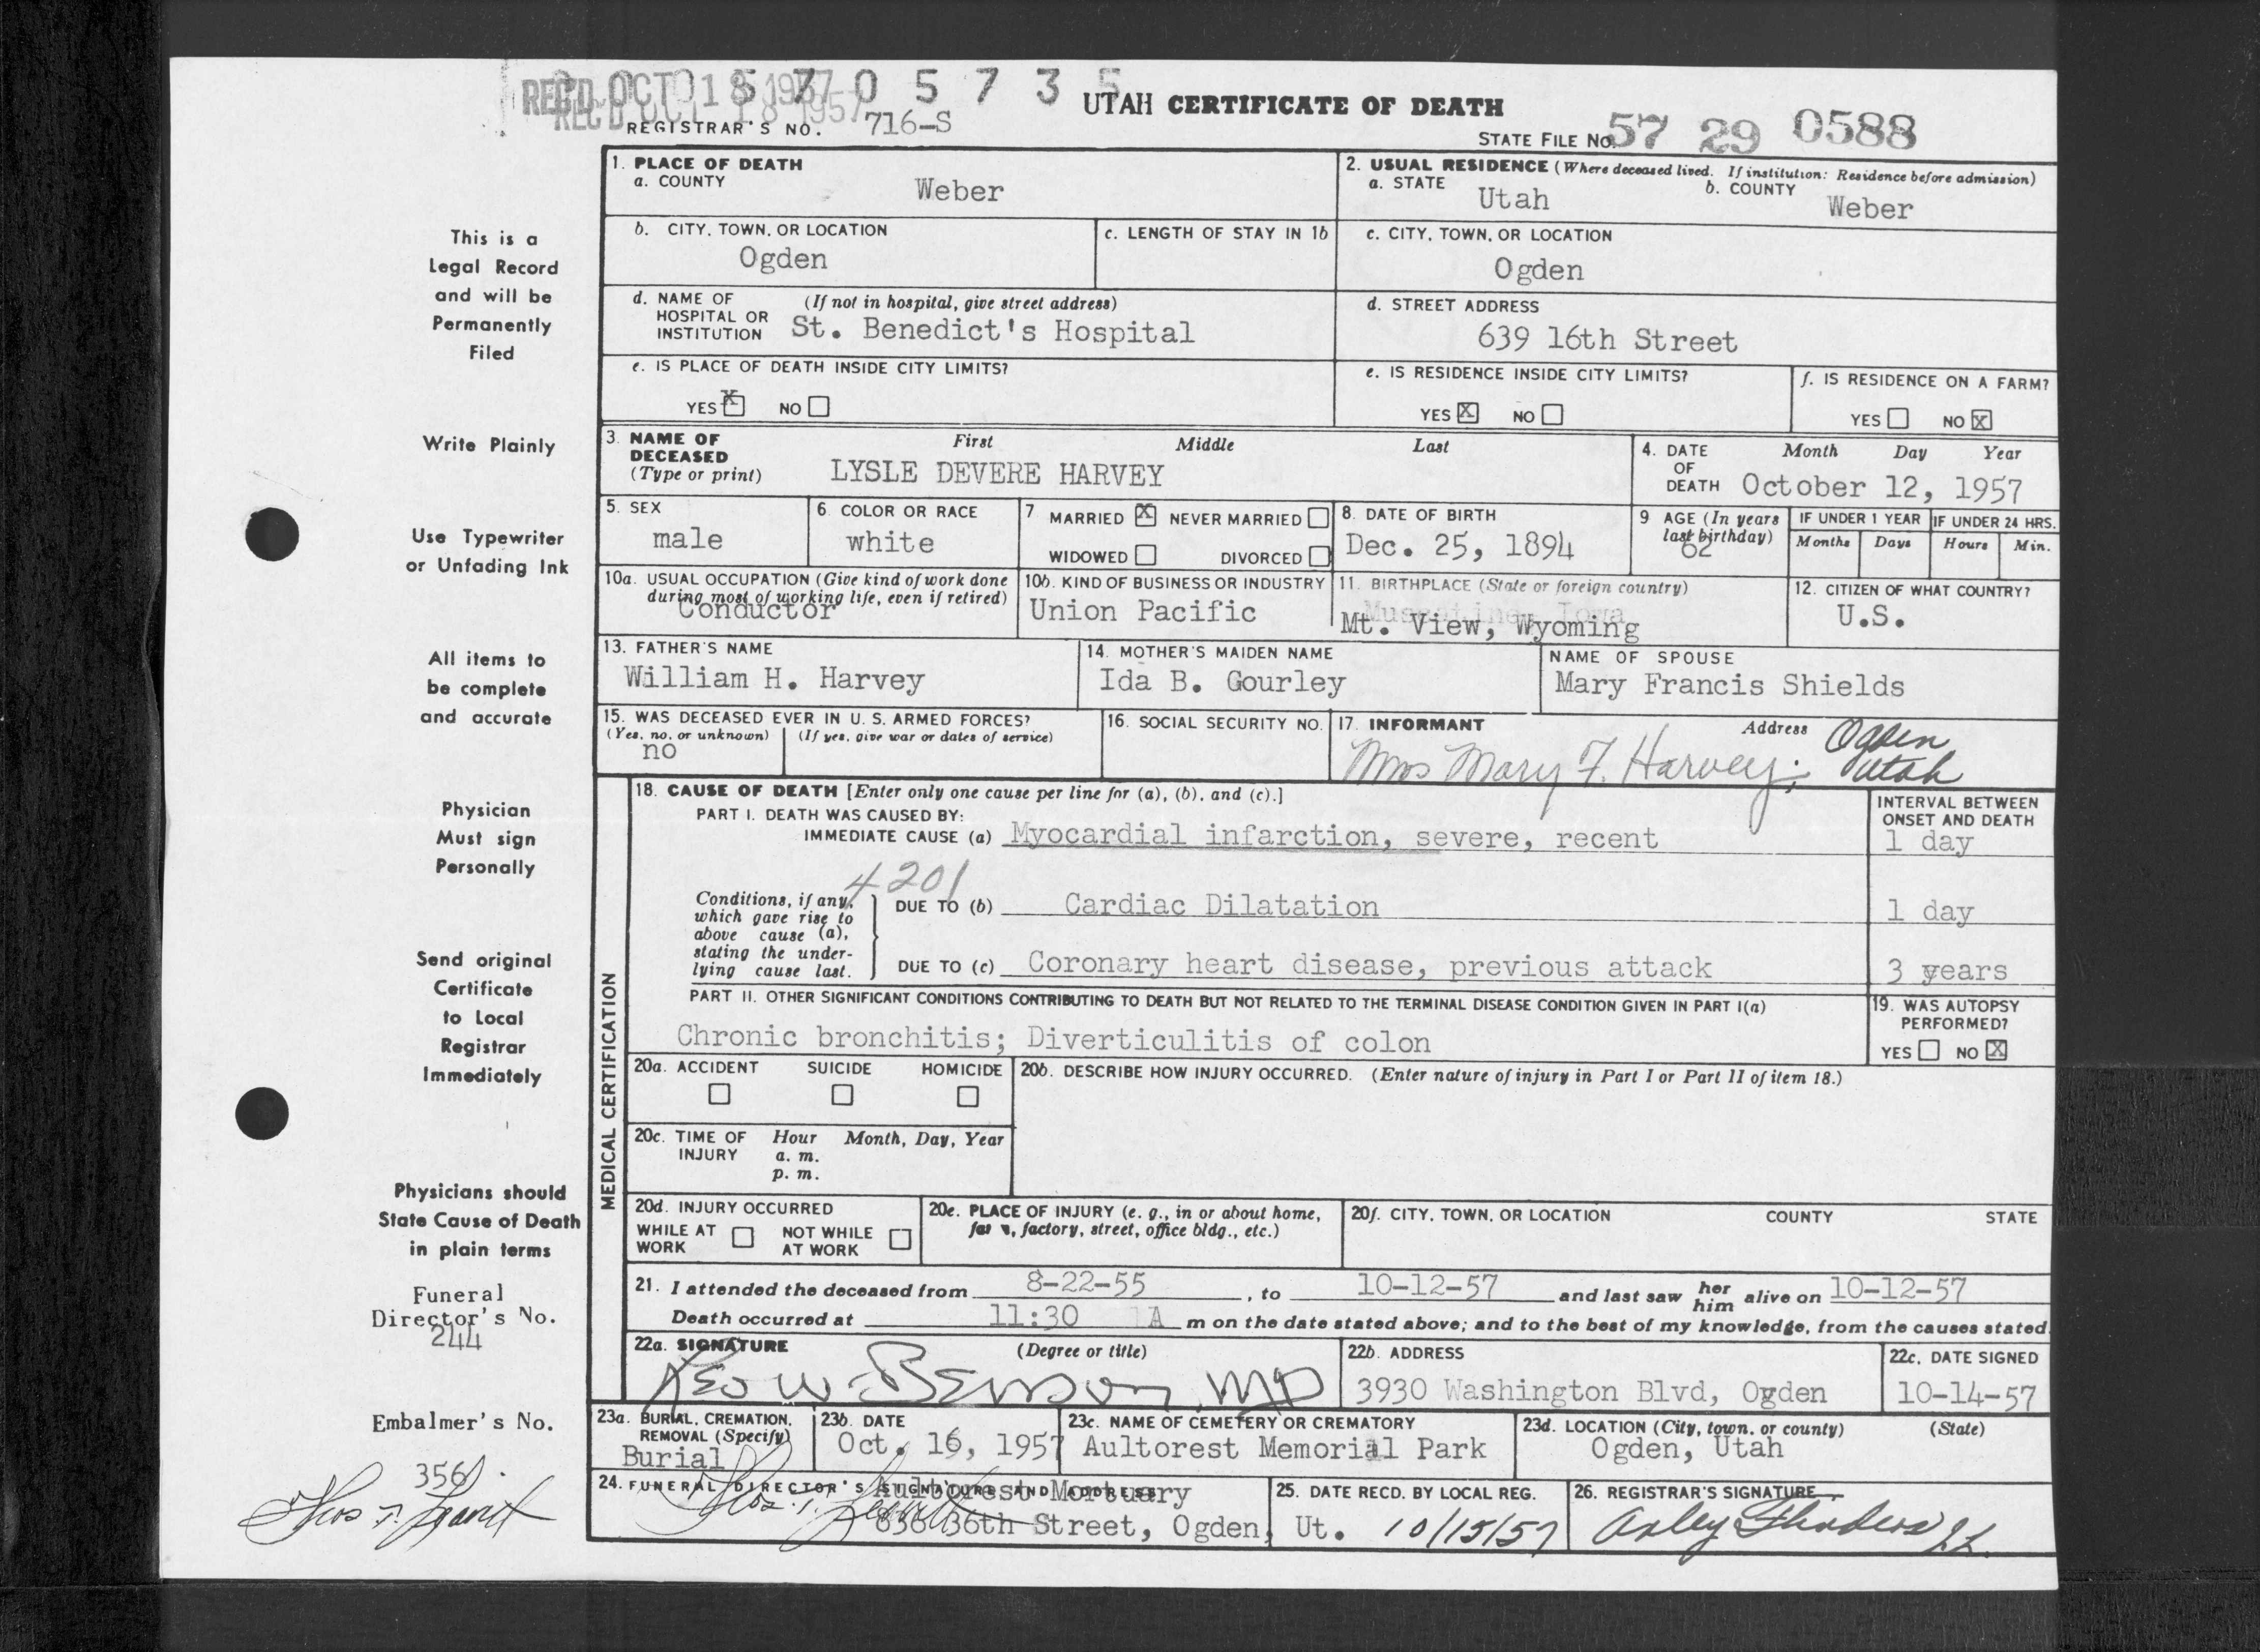 REC'D OCT 18 1957
5 7 0 5 7 3 5
UTAH CERTIFICATE OF DEATH
REGISTRAR'S NO. 716-S
STATE FILE NO. 57 29 0588
1. PLACE OF DEATH
a. COUNTY
Weber
2. USUAL RESIDENCE (Where deceased lived. If institution: Residence before admission)
a. STATE Utah b. COUNTY Weber
b. CITY, TOWN, OR LOCATION
Ogden
c. LENGTH OF STAY IN 1b
c. CITY, TOWN, OR LOCATION
Ogden
d. NAME OF HOSPITAL OR INSTITUTION (If not in hospital, give street address)
St. Benedict's Hospital
d. STREET ADDRESS
639 16th Street
e. IS PLACE OF DEATH INSIDE CITY LIMITS?
YES X NO
e. IS RESIDENCE INSIDE CITY LIMITS?
YES X NO
f. IS RESIDENCE ON A FARM?
YES NO X
3. NAME OF DECEASED (Type or print)
First Middle Last
LYSLE DEVERE HARVEY
4. DATE OF DEATH Month Day Year
October 12, 1957
5. SEX
male
6. COLOR OR RACE
white
7 MARRIED X NEVER MARRIED
WIDOWED DIVORCED
8. DATE OF BIRTH
Dec. 25, 1894
9 AGE (In years last birthday)
62
IF UNDER 1 YEAR IF UNDER 24 HRS.
Months Days Hours Min.
10a. USUAL OCCUPATION (Give kind of work done during most of working life, even if retired)
Conductor
10b. KIND OF BUSINESS OR INDUSTRY
Union Pacific
11. BIRTHPLACE (State or foreign country)
Muscatine, Iowa
Mt. View, Wyoming
12. CITIZEN OF WHAT COUNTRY?
U.S.
13. FATHER'S NAME
William H. Harvey
14. MOTHER'S MAIDEN NAME
Ida B. Gourley
NAME OF SPOUSE
Mary Francis Shields
15. WAS DECEASED EVER IN U.S. ARMED FORCES?
(Yes, no, or unknown) (If yes, give war or dates of service)
no
16. SOCIAL SECURITY NO.
17. INFORMANT Address
Mrs Mary F. Harvey; Ogden Utah
MEDICAL CERTIFICATION
18. CAUSE OF DEATH [Enter only one cause per line for (a), (b), and (c).]
INTERVAL BETWEEN ONSET AND DEATH
PART I. DEATH WAS CAUSED BY:
IMMEDIATE CAUSE (a) Myocardial infarction, severe, recent 1 day
4201
Conditions, if any, which gave rise to above cause (a), stating the underlying cause last.
DUE TO (b) Cardiac Dilatation 1 day
DUE TO (c) Coronary heart disease, previous attack 3 years
PART II. OTHER SIGNIFICANT CONDITIONS CONTRIBUTING TO DEATH BUT NOT RELATED TO THE TERMINAL DISEASE CONDITION GIVEN IN PART I(a)
Chronic bronchitis; Diverticulitis of colon
19. WAS AUTOPSY PERFORMED?
YES NO X
20a. ACCIDENT SUICIDE HOMICIDE
20b. DESCRIBE HOW INJURY OCCURRED. (Enter nature of injury in Part I or Part II of item 18.)
20c. TIME OF INJURY Hour Month, Day, Year
a. m.
p. m.
20d. INJURY OCCURRED
WHILE AT WORK NOT WHILE AT WORK
20e. PLACE OF INJURY (e. g., in or about home, farm, factory, street, office bldg., etc.)
20f. CITY, TOWN, OR LOCATION COUNTY STATE
21. I attended the deceased from 8-22-55, to 10-12-57 and last saw her him alive on 10-12-57
Death occurred at 11:30 A m on the date stated above; and to the best of my knowledge, from the causes stated.
22a. SIGNATURE (Degree or title)
Leo W. Benson, MD
22b. ADDRESS
3930 Washington Blvd, Ogden
22c. DATE SIGNED
10-14-57
23a. BURIAL, CREMATION, REMOVAL (Specify)
Burial
23b. DATE
Oct. 16, 1957
23c. NAME OF CEMETERY OR CREMATORY
Aultorest Memorial Park
23d. LOCATION (City, town, or county) (State)
Ogden, Utah
24. FUNERAL DIRECTOR'S SIGNATURE AND ADDRESS
Aultorest Mortuary
836 36th Street, Ogden, Ut.
25. DATE RECD. BY LOCAL REG.
10/15/57
26. REGISTRAR'S SIGNATURE
This is a
Legal Record
and will be
Permanently
Filed
Write Plainly
Use Typewriter
or Unfading Ink
All items to
be complete
and accurate
Physician
Must sign
Personally
Send original
Certificate
to Local
Registrar
Immediately
Physicians should
State Cause of Death
in plain terms
Funeral
Director's No.
244
Embalmer's No.
356